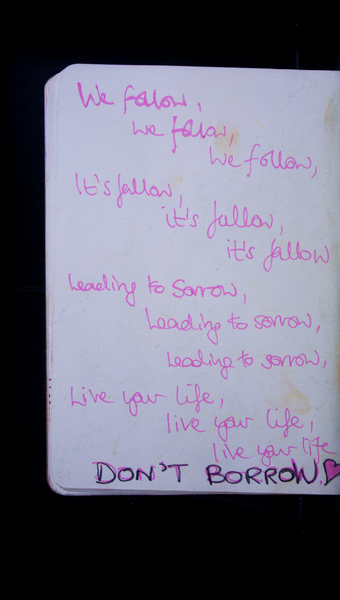 We follow,
we follow,
We follow,
It's fallow,
it's fallow,
it's fallow
Leading to sorrow,
Leading to sorrow,
Leading to sorrow,
Live your life,
live your life,
live your life
DON'T BORROW.